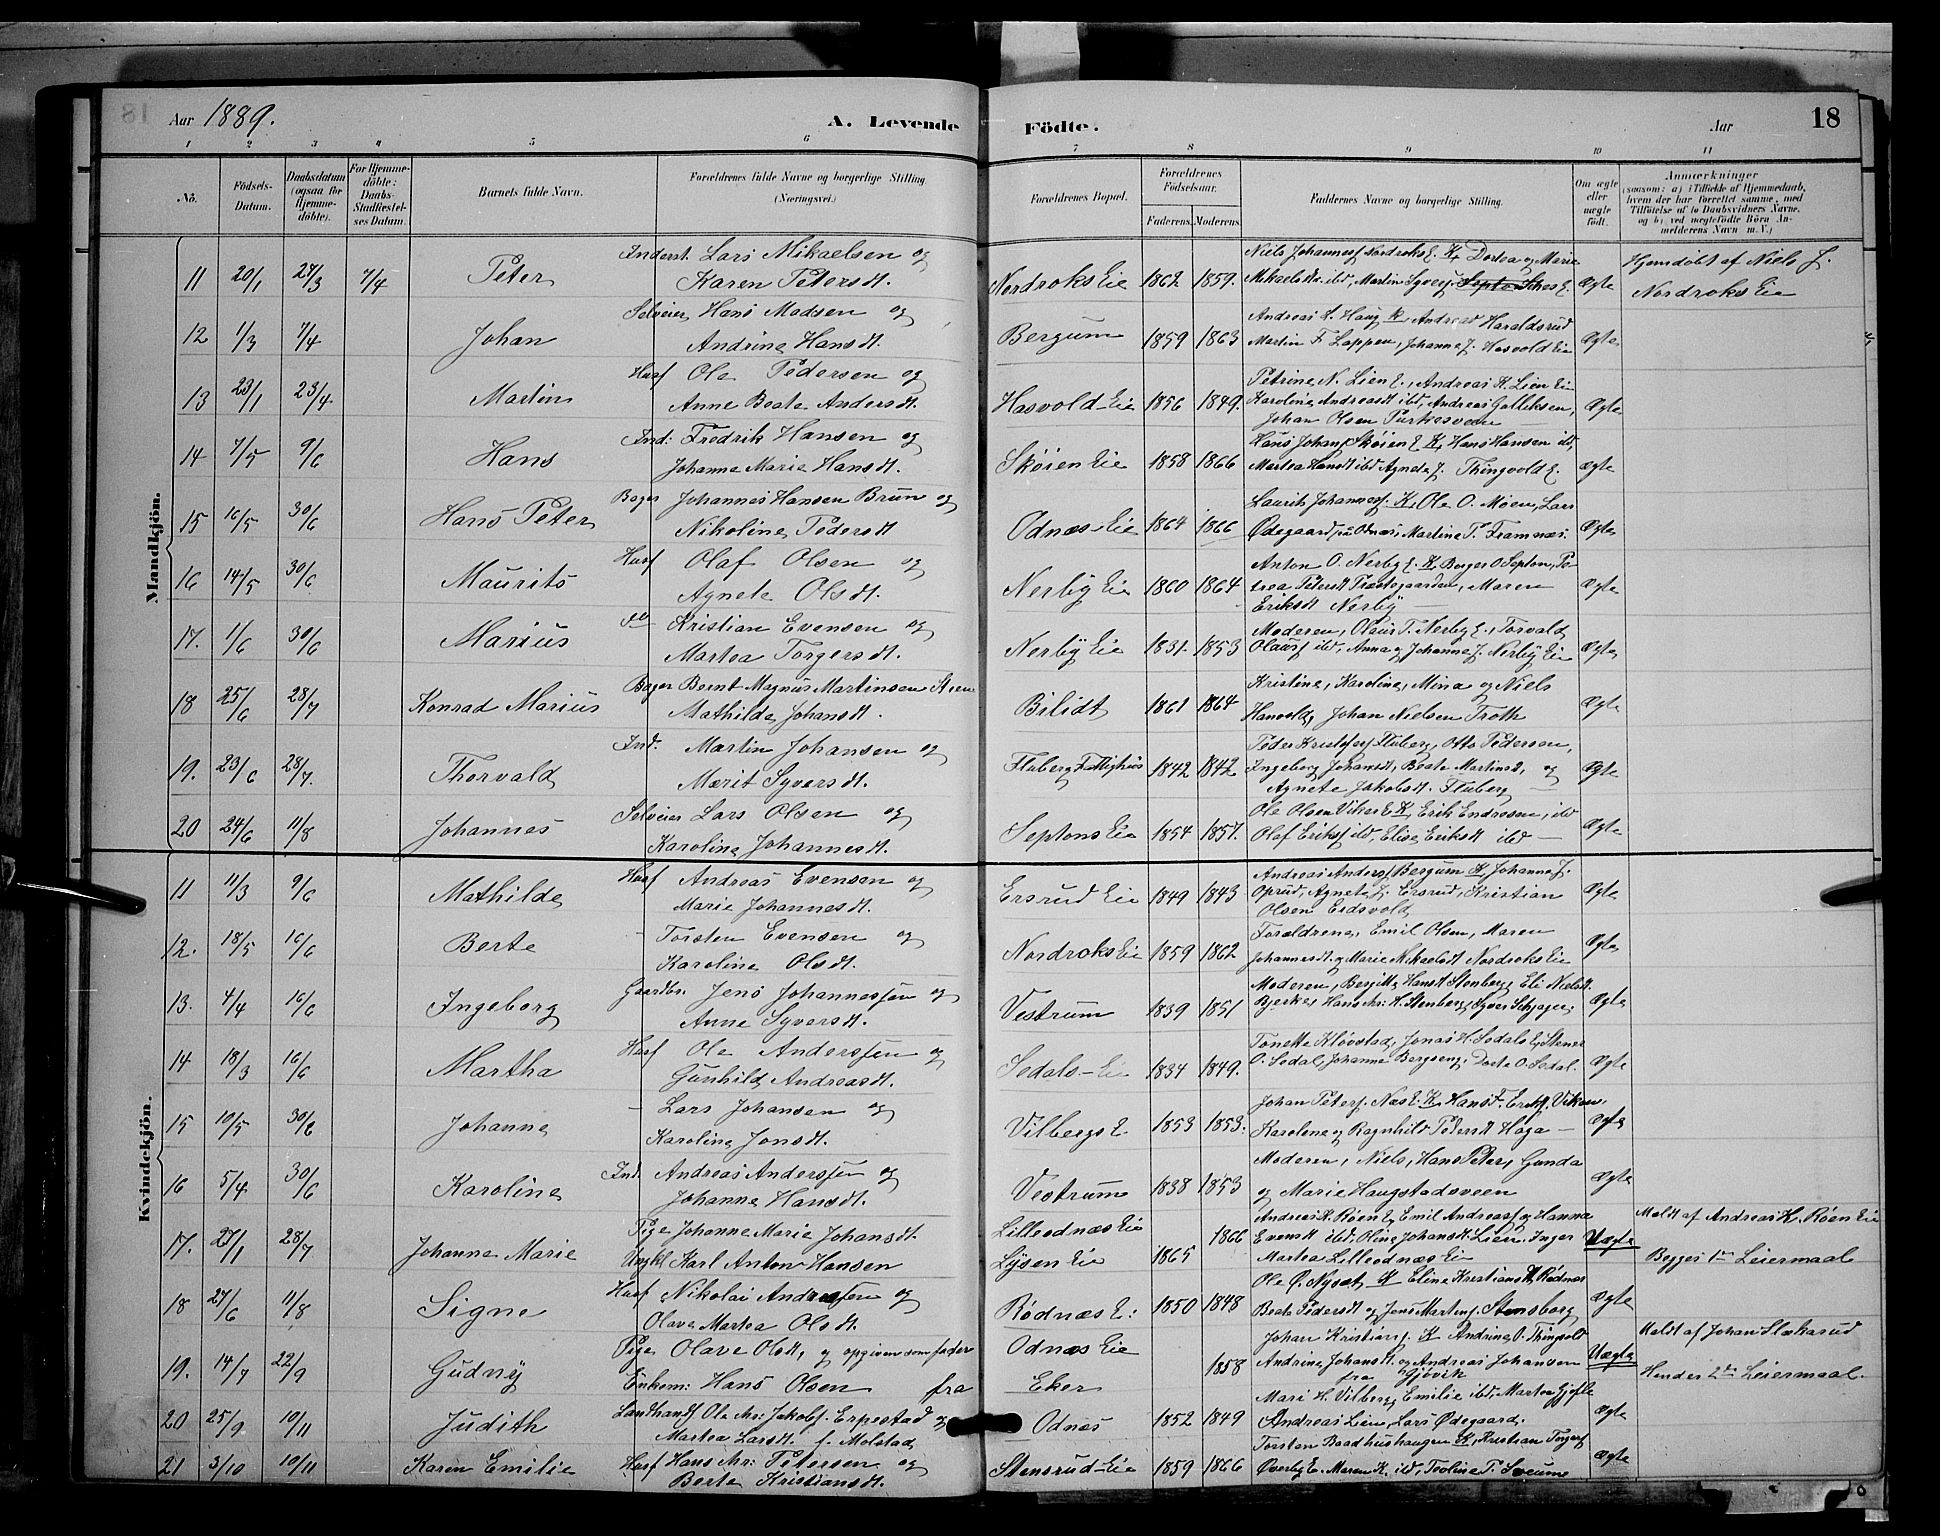 Aar 1889. A. Levende Födte. Aar 18
1 2 3 4 5 6 7 8 9 10 11
No. Födsels-Datum. Daabsdatum (ogsaa for Hjemmedöbte). For Hjemmedöbte: Daabs-Stadfæstelses Datum. Barnets fulde Navn. Forældrenes fulde Navne og borgerlige Stilling (Næringsvei.) Forældrenes Bopæl. Forældrenes Födselsaar. Faderens. Moderens. Faddernes Navne og borgerlige Stilling. Om ægte eller uægte födt. Anmærkninger (saasom: a) i Tilfælde af Hjemmedaab, hvem der har forrettet samme, med Tilföielse af to Daabsvidners Navne, og b) ved uægtefödte Börn Anmelderens Navn m. V.)
Mandkjön.
11 20/1 27/3 7/4 Peter Inderst. Lars Mikaelsen og Karen Petersdt. Nordroks Eie 1862 1859. Niels Johannesf Nordroks E. K, Dortea og Marie Mikaelsdtr. ibd, Martin Syversf. Ægte Hjemdöbt af Niels J. Nordroks Eie
12 1/3 7/4 Johan Selveier Hans Madsen og Andrine Hansdt. Bergum 1859 1863 Andreas L. Haug K, Andreas Haraldsrud Martin F. Lappen, Johanne J. Hasvold Eie Ægte
13 23/1 23/4 Martin Husf Ole Pedersen og Anne Beate Andersdt. Hasvold Eie 1856 1849. Petrine N. Lien E., Andreas K. Lien Eie Karoline Andreasdt ibd, Andreas Gulliksen, Johan Olsen Purkesveen Ægte
14 7/5 9/6 Hans Ind: Fredrik Hansen og Johanne Marie Hansdt. Skøien Eie 1858 1866 Hans Johansf Skøien E K, Hans Hansen ibd, Martea Hansdt ibd Agnete J. Thingvold E. ægte
15 16/5 30/6 Hans Peter Bager Johannes Hansen Brun og Nikoline Pedersdt Odnæs Eie 1864 1866 Laurits Johannesf. K, Ole O. Moen, Lars Ødegaard på Odnæs, Martine P. Framnæs. Ægte
16 14/5 30/6 Maurits Husf Olaf Olsen og Agnete Olsdt. Nerby Eie 1860 1864 Anton O. Nerby E. K, Borger O Septon, Petrea Petersdt Præstegaarden, Maren Eriksdt Nerby Ægte
17. 1/6 30/6 Marius do Kristian Evensen og Martea Torgersdt. Nerby Eie 1831 1853 Moderen, Olaus T. Nerby E., Torvald Olausf ibd, Anna og Johanne J. Nerby Eie Ægte
18 25/6 28/7 Konrad Marius Bager Bernt Magnus Martinsen Mathilde Johansdt. Bilidt 1861 1864 Kristine, Karoline, Mina og Niels Johan Nielsen Ægte
19. 23/6 28/7. Thorvald Ind. Martin Johansen og Marit Syversdt. Fluberg Fattighus 1842 1842 Peder Kristofersf Fluberg, Otto Pedersen, Ingeborg Johansdt, Beate Martinsd, og Agnete Jakobsdt. Fluberg Ægte
20 24/6 11/8 Johannes Selveier Lars Olsen og Karoline Johannesdt. Septons Eie 1854 1857. Ole Olsen Viker E K, Erik Endresen, ibd Olaf Eriksf ibd, Elise Eriksdt ibd Ægte
Kvindekjön.
11 11/3 9/6 Mathilde Husf Andreas Evensen og Marie Johannesdt. Ersrud Eie 1849 1843 Andreas Andersf Bergum K, Johanne J. Oprud, Agnete J. Ersrud, Kristian Olsen Eidsvold Ægte
12. 18/5 16/6 Berte - Torsten Evensen og Karoline Olsdt. Nordroks Eie 1859 1862 Forældrene, Emil Olsen, Maren Johannesdt. og Marie Mikaelsdt Nordroks Eie Ægte
13. 4/4 16/6 Ingeborg Gaardbr. Jens Johannessen og Anne Syversdt. Vestrum 1839 1851 Moderen, Bergitte Hansdt Stenberg, Eli Nielsdt. Bjerke, Hans Chr. H. Stenberg, Syver Ægte
14 18/3 16/6 Martha Husf Ole Anderssen og Gunhild Andreasdt. Sedals Eie 1834 1849. Tonette Kløvstad, Jonas H. Sedals E, Stener O. Sedal, Johanne Bergseng, Dorte O. Sedal. Ægte
15 10/5 30/6 Johanne - Lars Johansen og Karoline Jonsdt. Vilbergs E 1853 1853. Johan Petersf. Næs E. K, Hans F. Eriksf. Viken, Karoline og Ragnhild Pedersdt Haga Ægte
16 5/4 30/6 Karoline Ind. Andreas Anderssen og Johanne Hansdt. Vestrum 1838 1853 Moderen, Niels, Hans Peter, Gunda og Marie Haugstadsveen Ægte
17. 27/1 28/7 Johanne Marie Pige Johanne Marie Johansdt. Ungkl Karl Anton Hansen Lilleodnæs Eie Lysen Eie 1865 1866 Andreas K. Røen E, Emil Andreasf og Hanna Evensdt ibd, Oline Johansdt. Lien, Inger Martea Lilleodnæs Eie Uægte Meldt af Andreas K. Røen Eie Begges 1ste Leiermaal
18 27/6 11/8 Signe Husf Nikolai Andreassen og Olave Martea Olsdt. Rødnæs E: 1850 1848 Ole O. Nysæt K Eline Kristiansdt, Rødnæs Beate Pedersdt og Jens Martinsf. Stensborg Ægte
19. 14/7 22/9 Gudny Pige Olave Olsdt, og opgiven som fader Enkem: Hans Olsen fra Odnæs Eie Eker 1858 Johan Kristiansf. K Andrine O. Thingvold Andrine Johansdt og Andreas Johansen fra Gjøvik Uægte Meldt af Johan Slækasrud Hendes 2det Leiermaal.
20 25/9 10/11 Judith Landhandl Ole Chr: Jakobsf. Erpestad og Martea Larsdt. f. Molstad Odnæs 1852 1849 Mari H. Vilberg, Emilie ibd, Martea Gjefle Andreas Lien, Lars Ødegaard. Ægte
21 3/10 10/11 Karen Emilie Husf Hans Chr: Petersen og Berte Kristiansdt. Stensrud Eie 1859 1866 Torsten Baadhushaugen K, Kristian Torgersf Øverby E. Maren K. ibd, Teoline P. Sveum Ægte